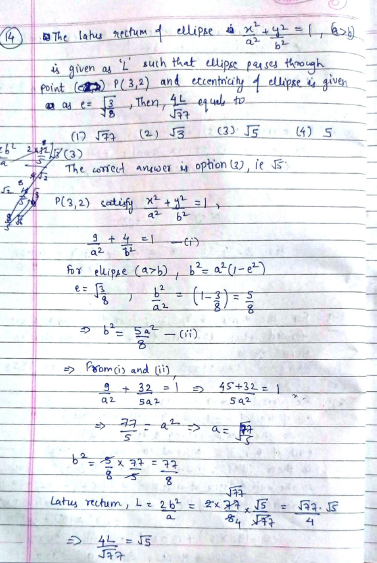 (14) The latus rectum of ellipse is x²/a² + y²/b² = 1, (a>b)
is given as 'L' such that ellipse passes through
point P(3,2) and eccentricity of ellipse is given
as e = √(3/8), Then, 4L/√77 equals to
(1) √77 (2) √3 (3) √5 (4) 5
(3)
The correct answer is option (3), ie √5
P(3,2) satisfy x²/a² + y²/b² = 1,
9/a² + 4/b² = 1 — (i)
For ellipse (a>b), b² = a²(1-e²)
e = √(3/8), b²/a² = (1-3/8) = 5/8
⇒ b² = 5a²/8 — (ii)
⇒ From (i) and (ii),
9/a² + 32/5a² = 1 ⇒ 45+32/5a² = 1
⇒ 77/5 = a² ⇒ a = √(77/5)
b² = 5/8 × 77/5 = 77/8
Latus rectum, L = 2b²/a = 2×77/8 × √5/√77 = √77·√5/4
⇒ 4L/√77 = √5